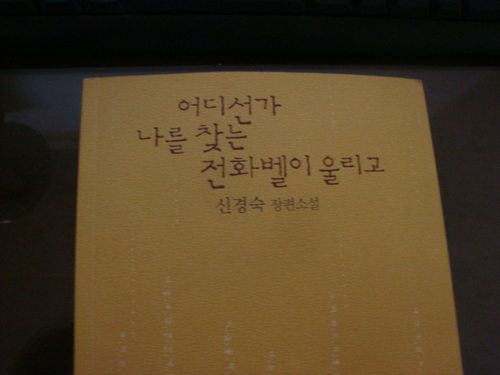 어디선가
나를 찾는
전화벨이 울리고
신경숙 장편소설